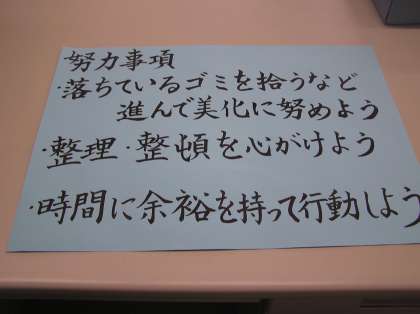 努力事項
・落ちているゴミを拾うなど
進んで美化に努めよう
・整理・整頓を心がけよう
・時間に余裕を持って行動しよう